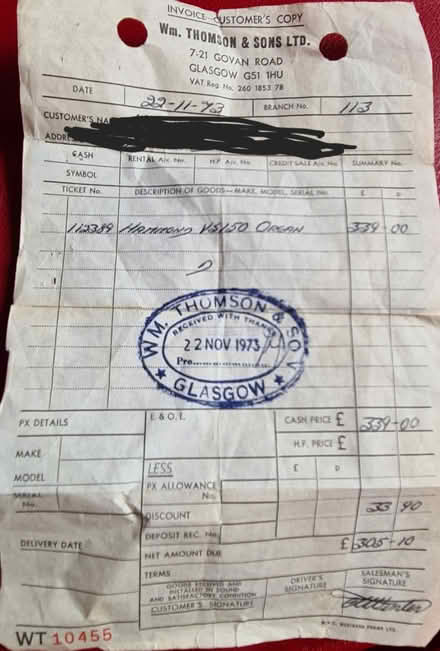 INVOICE—CUSTOMER'S COPY
Wm. THOMSON & SONS LTD.
7-21 GOVAN ROAD
GLASGOW G51 1HU
VAT Reg. No. 260 1853 78
DATE 22-11-73 BRANCH No. 113
CUSTOMER'S NA
ADDRE
CASH RENTAL A/c. No. H.P. A/c. No. CREDIT SALE A/c. No. SUMMARY No.
SYMBOL
TICKET No. DESCRIPTION OF GOODS—MAKE, MODEL, SERIAL No. £ P
112389 HAMMOND VS150 ORGAN 339-00
WM. THOMSON & SO
RECEIVED WITH THANKS
22 NOV 1973
Pro.
GLASGOW
PX DETAILS E & O.E. CASH PRICE £ 339-00
H.P. PRICE £
MAKE LESS £ P
MODEL PX ALLOWANCE
SERIAL No. No.
DISCOUNT 33 90
DEPOSIT REC. No.
DELIVERY DATE NET AMOUNT DUE £ 305-10
TERMS
GOODS RECEIVED AND INSTALLED IN SOUND AND SATISFACTORY CONDITION DRIVER'S SIGNATURE SALESMAN'S SIGNATURE
CUSTOMER'S SIGNATURE
WT 10455